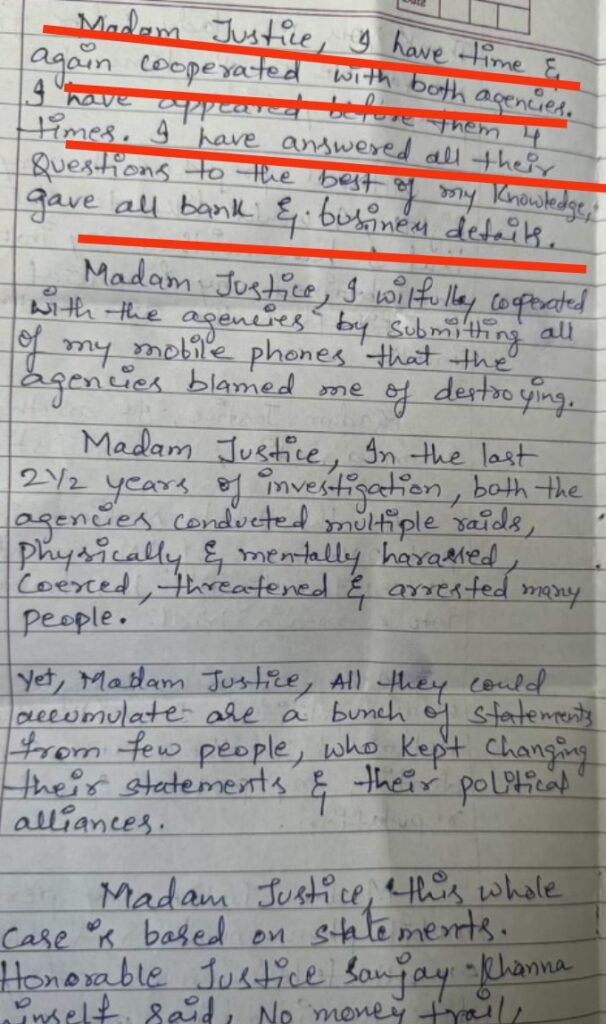 Madam Justice, I have time &
again cooperated with both agencies.
I have appeared before them 4
times. I have answered all their
Questions to the best of my Knowledge,
gave all bank & business details.
Madam Justice, I wilfully cooperated
with the agencies by submitting all
of my mobile phones that the
agencies blamed me of destroying.
Madam Justice, In the last
2 1/2 years of investigation, both the
agencies conducted multiple raids,
Physically & mentally harassed,
Coerced, threatened & arrested many
people.
Yet, Madam Justice, All they could
accumulate are a bunch of statements
from few people, who Kept Changing
their statements & their political
alliances.
Madam Justice, this whole
Case is based on statements.
Honorable Justice Sanjay Khanna
himself said, No money trail,